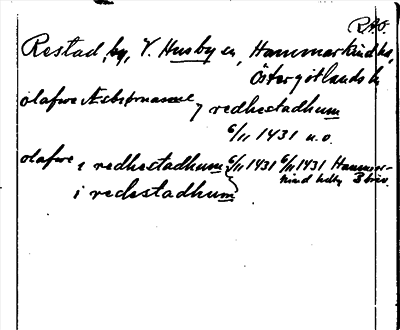 R.A.O.
Restad, by, V. Husby sn, Hammarkind hd,
Östergötlands l.
olafwe Asbiörnasune
j redhestadhum
6/11 1431 u.o.
olafwe i redhestadhum 6/11 1431 6/11 1431 Hammar-
kind
i redestadhum